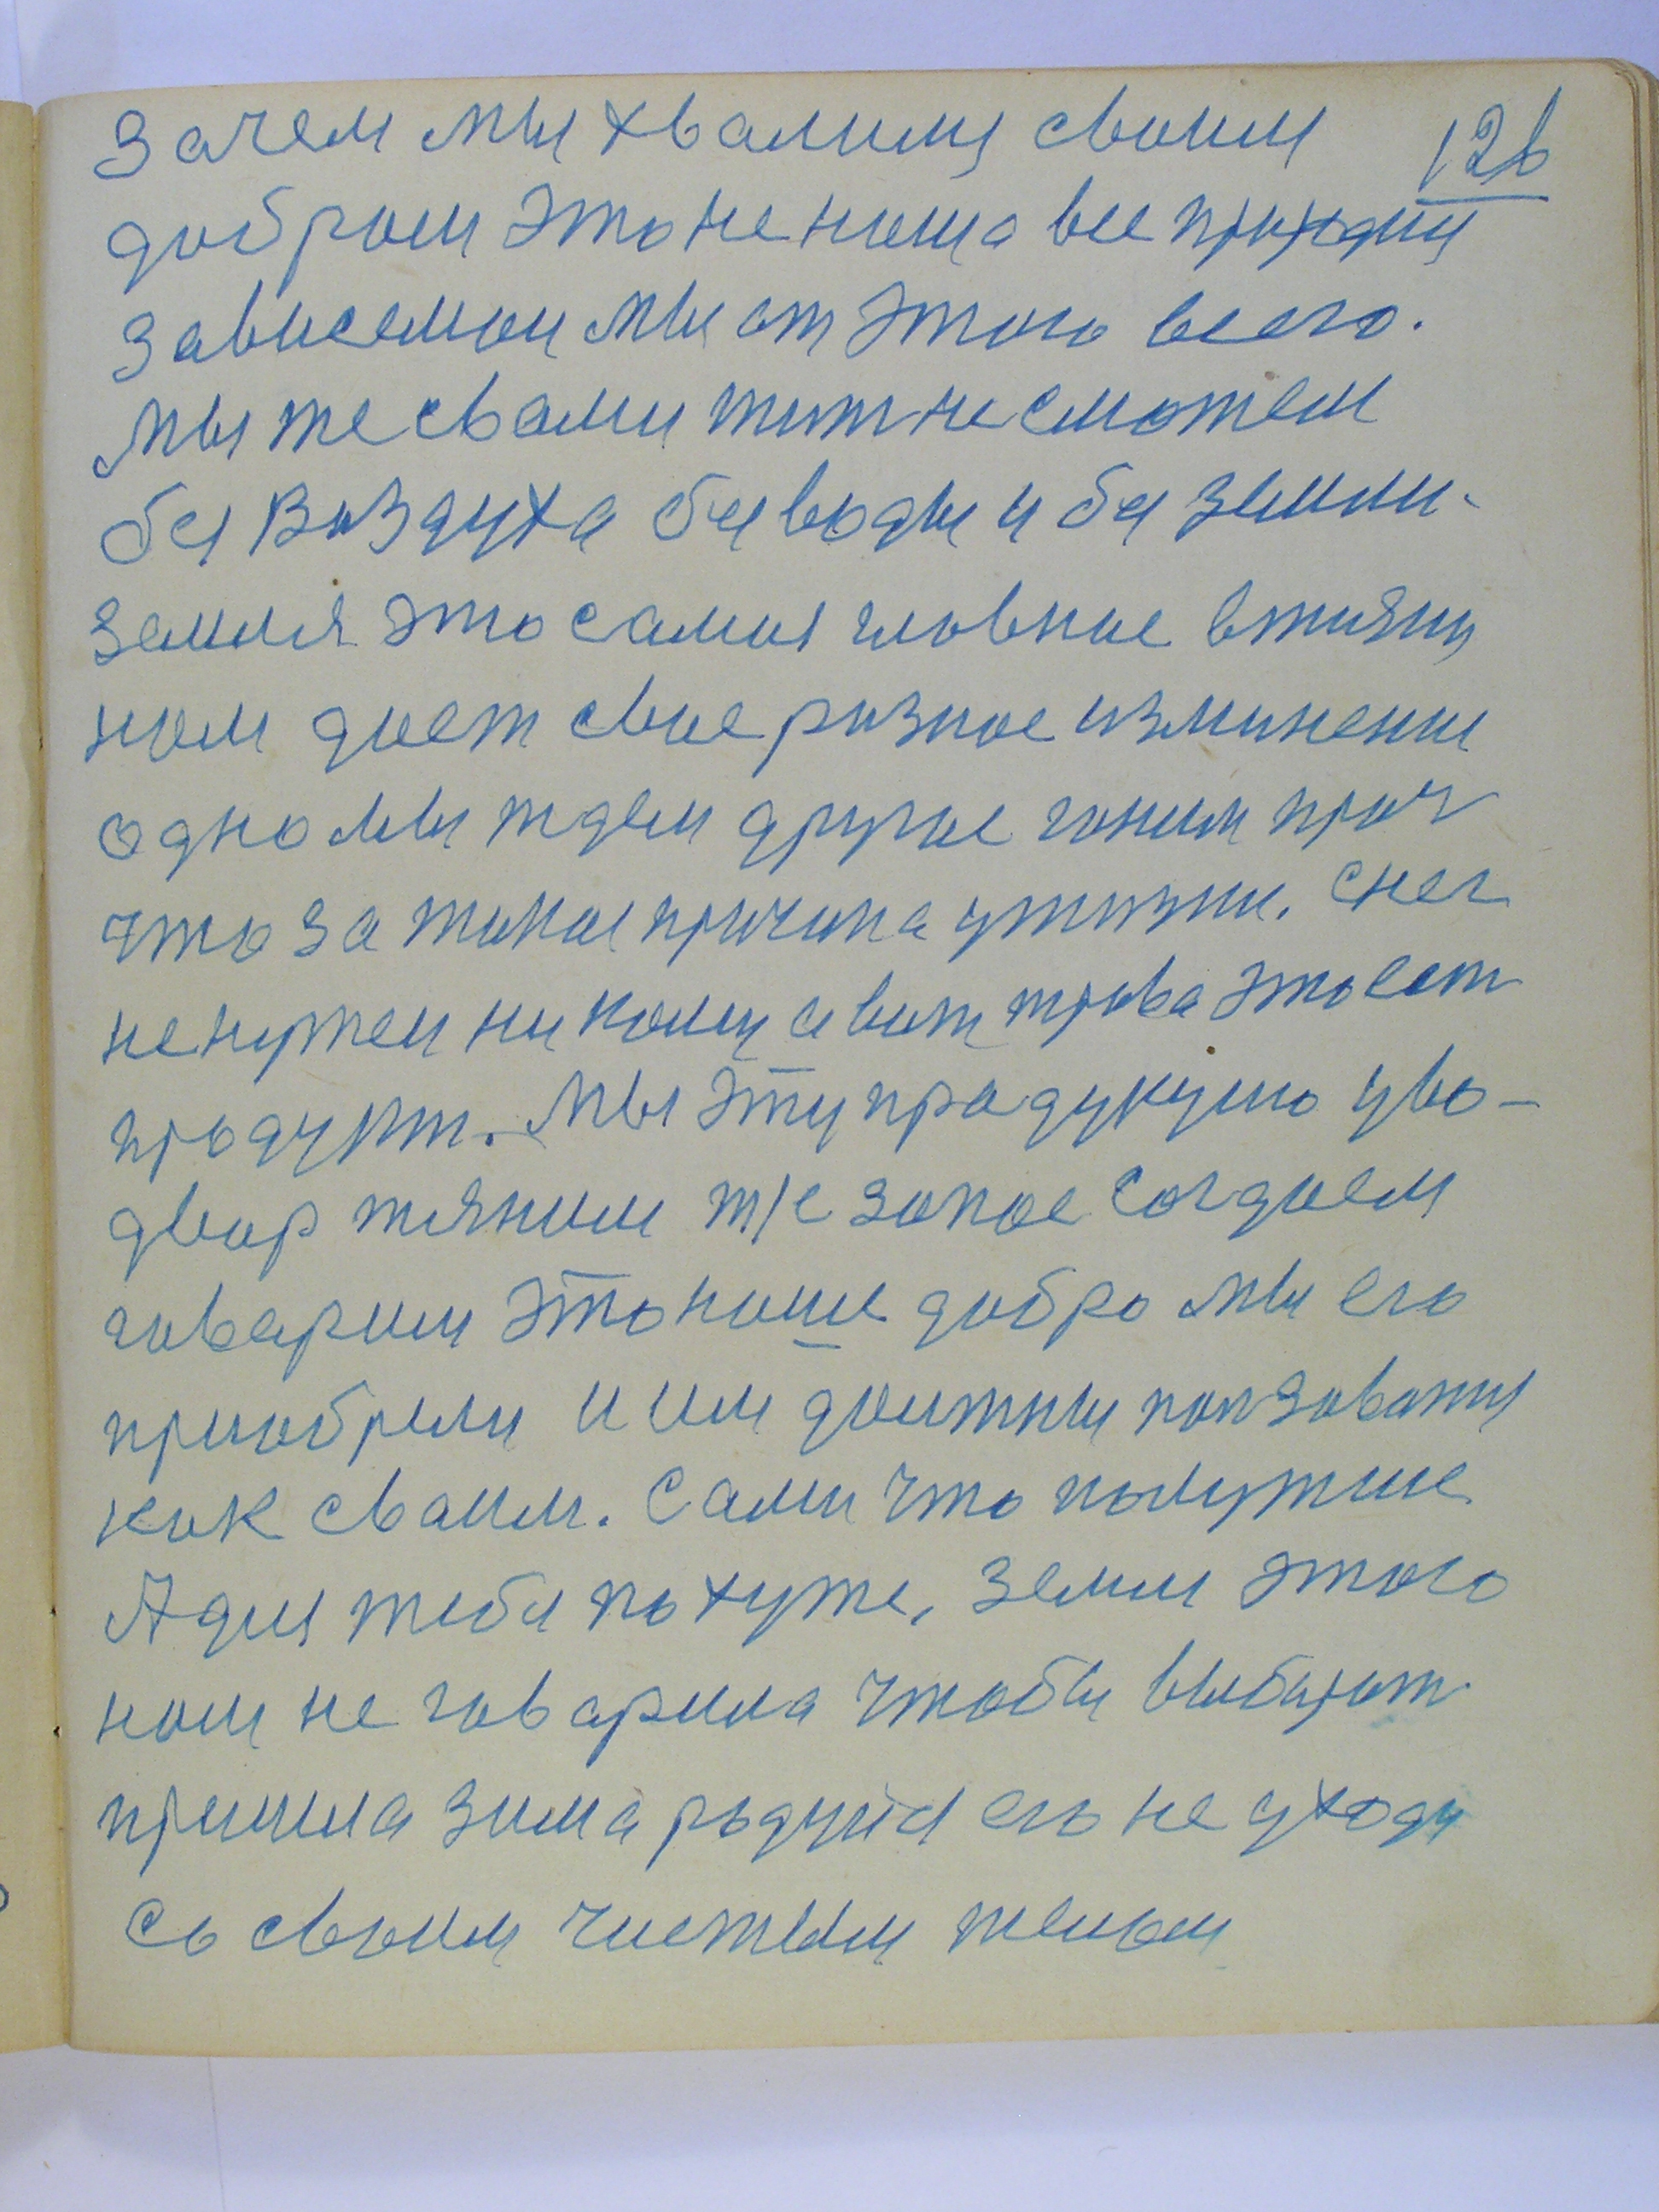 зачем мы хвалимся своим 126
добром это не наша все природы
зависемои мы от этого всего.
мы же свами жит не сможем
без воздуха без воды и без земли.
земля это самая главное вжизни
нам дает свое разное изминении
одно мы ждем другое гоним проч
что за такая причина ужизни. Снег
ненужен ни кому а вит трава это ест
продукт. Мы эту прадукцию уво-
двор тяним
говарим это наше добро мы его
приобрели и им должны ползоватця
как сваим. Сами что полутше
А для тебя похуже, земля этого
нам не говарила чтобы выбират
пришла зима радуйся его не уходи
со своим чистым телом